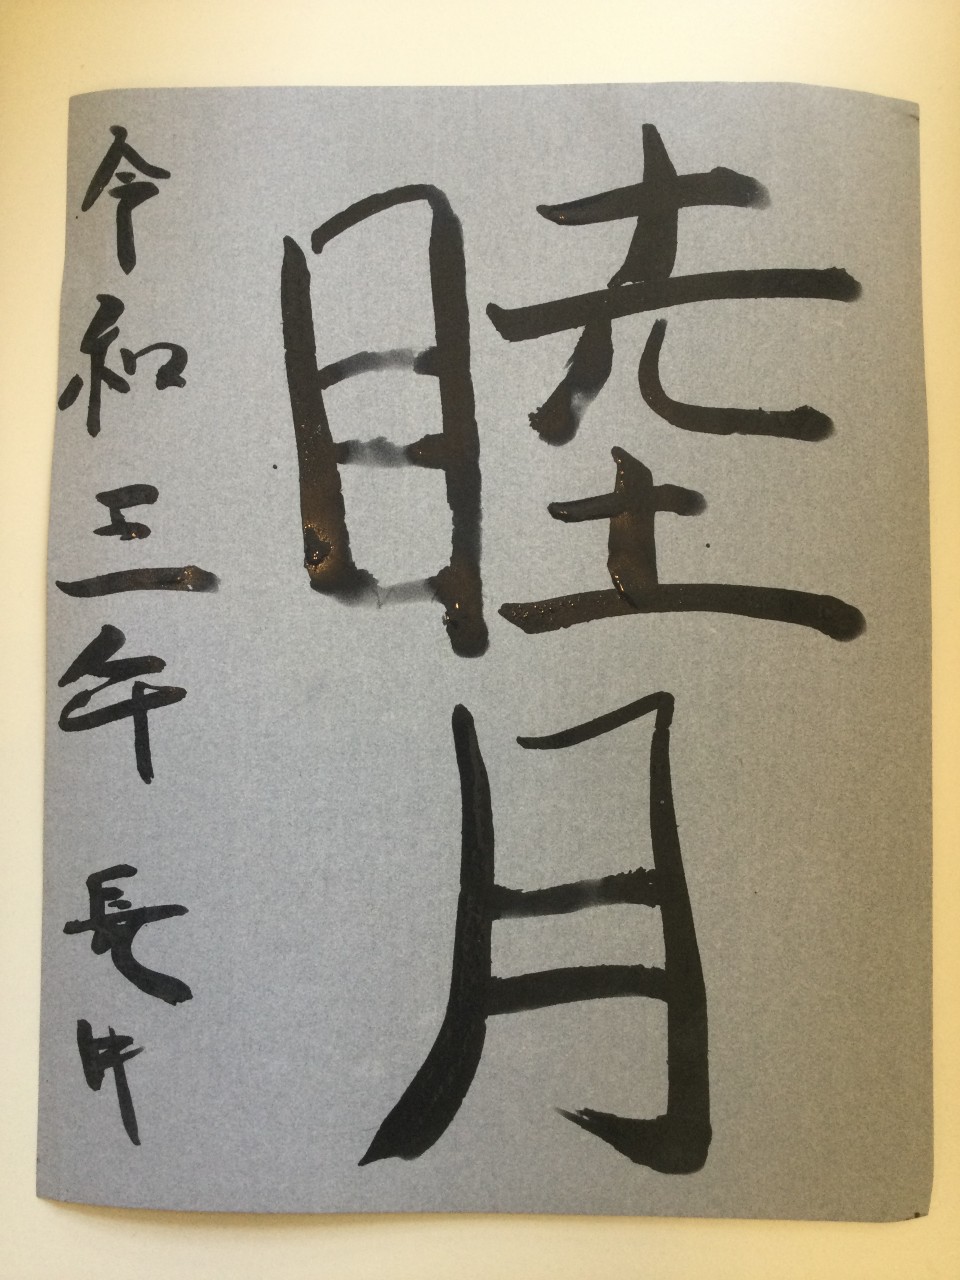 睦月
令和三年 長井